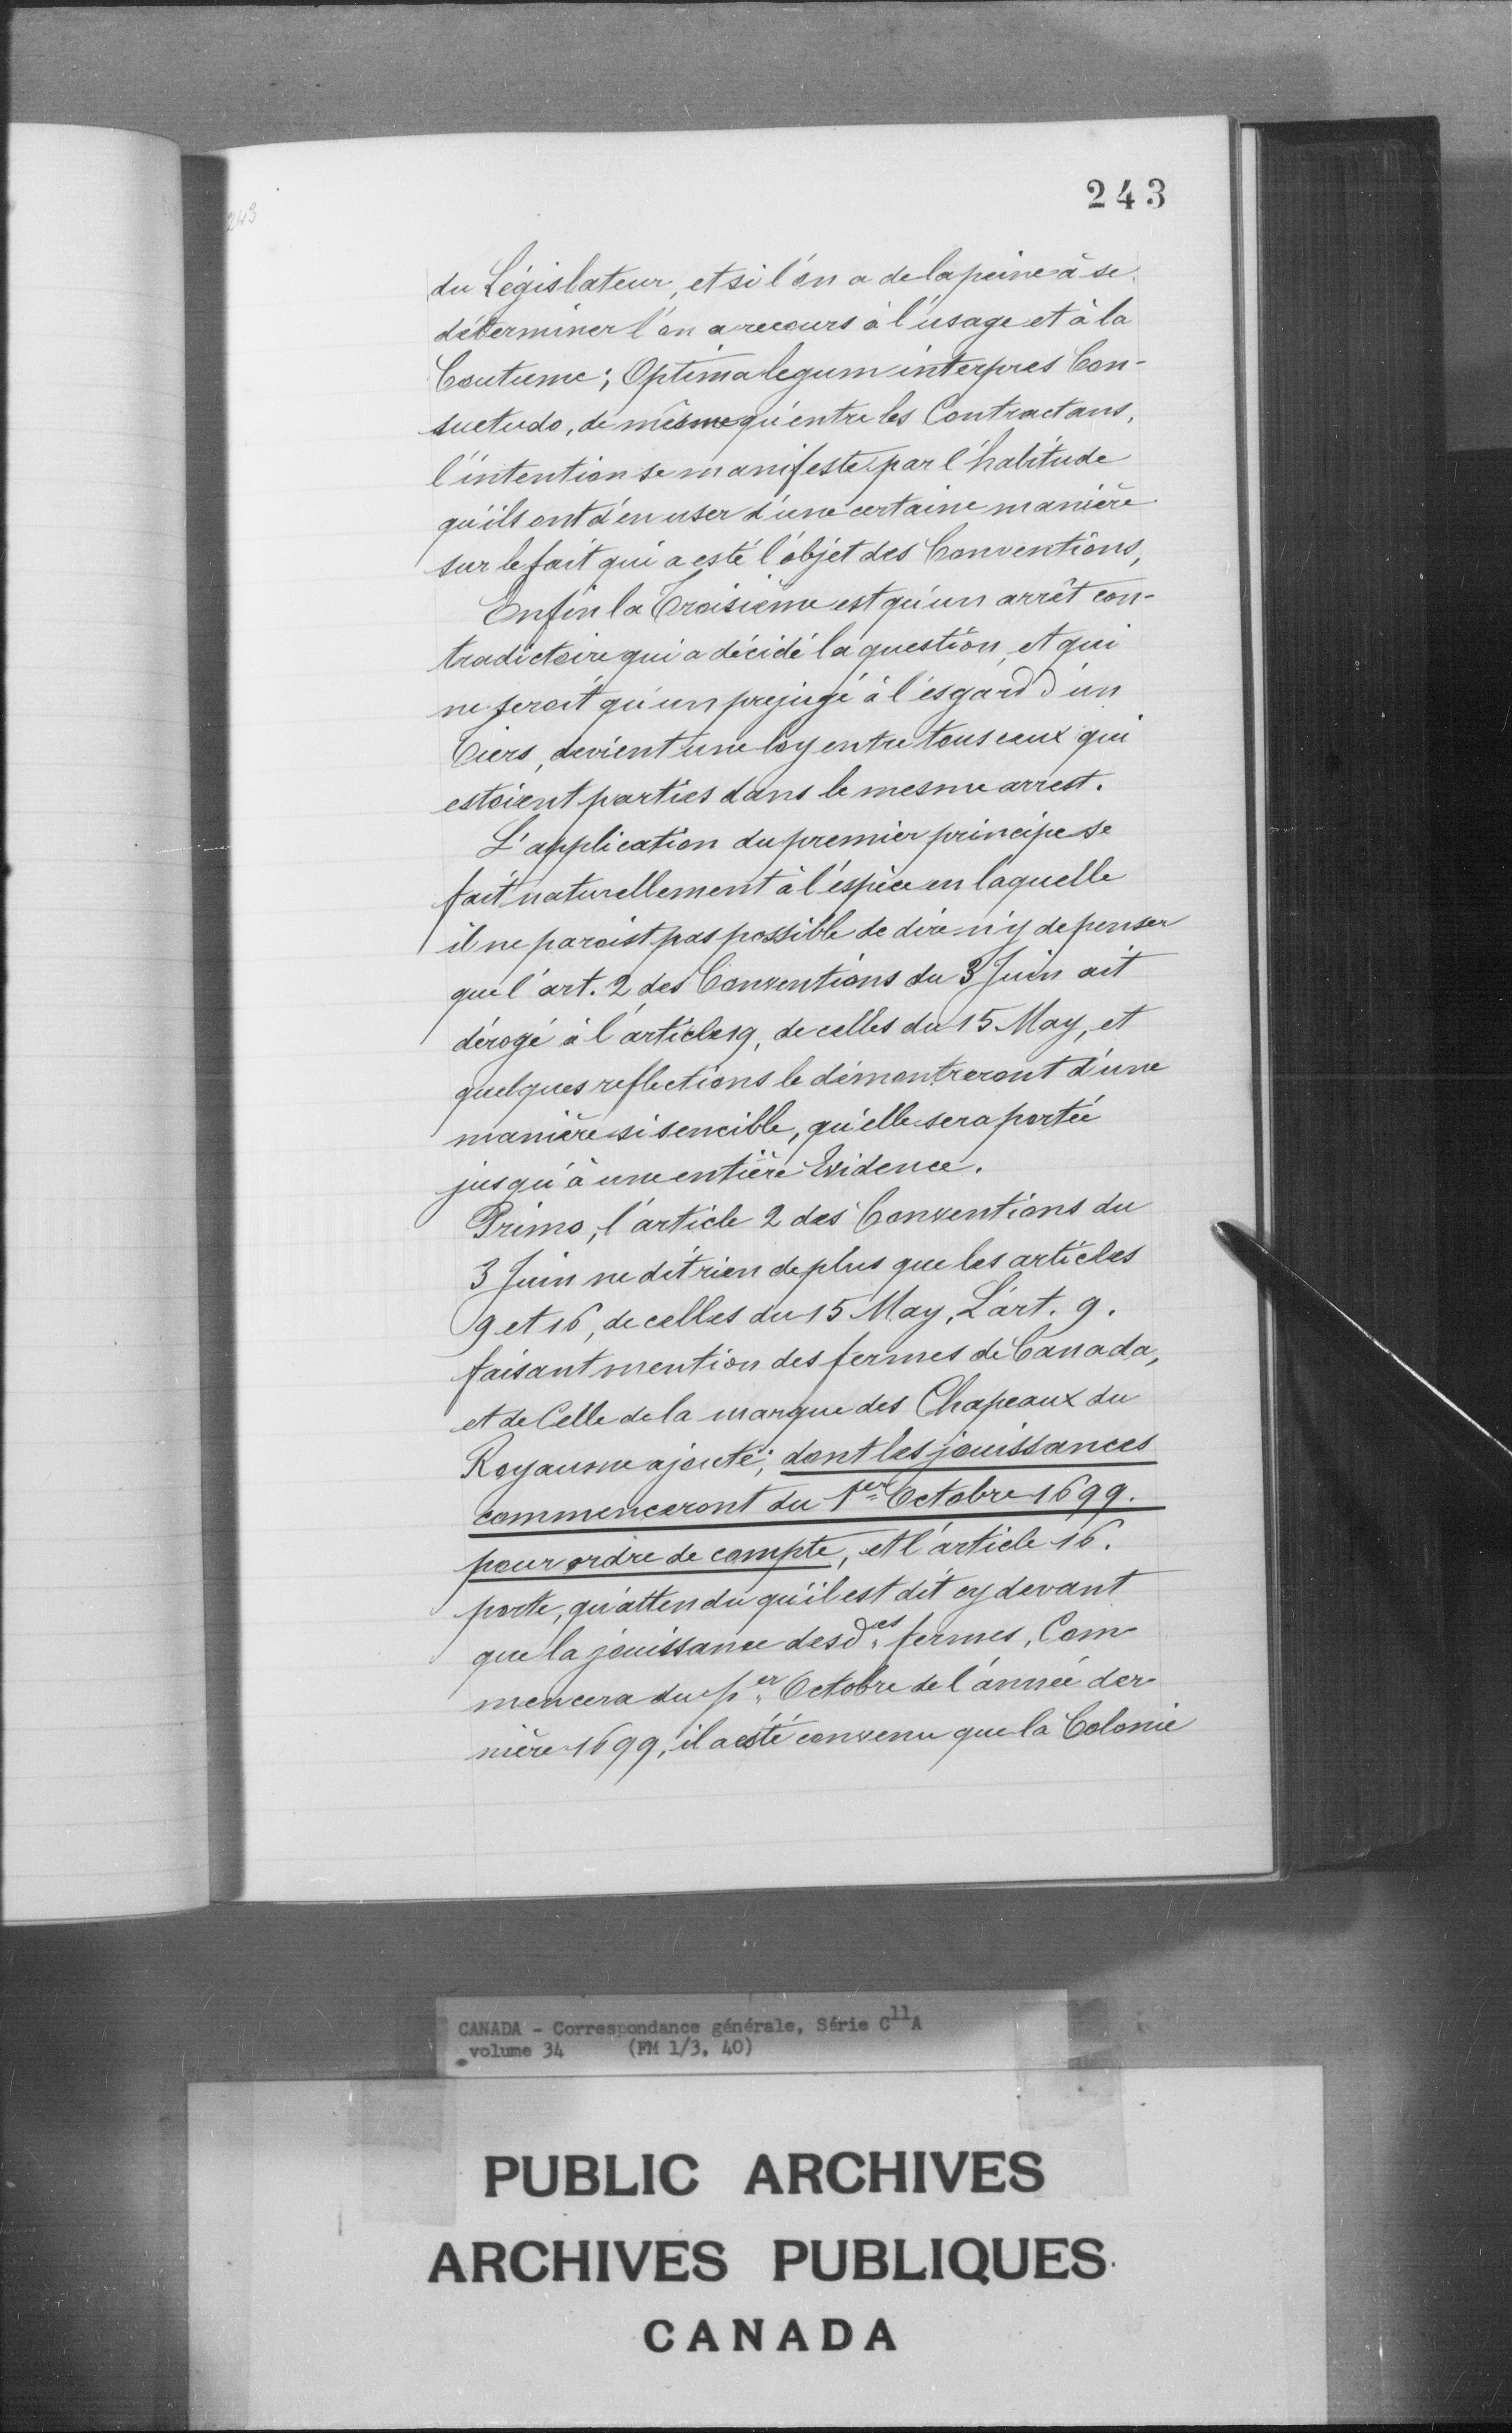 243
243
du Législateur, et si l'on a de la peine à se
déterminer l'on a recours à l'usage et à la
Coutume; Optima legum interpres Con-
suetudo, de mêsme qu'entre les Contractans,
l'intention se manifeste par l'habitude
qu'ils ont d'en user d'une certaine manière
sur le fait qui a esté l'objet des Conventions,
Enfin la Troisième est qu'un arrêt con-
tradictoire qui a décidé la question, et qui
ne seroit qu'un prejugé à l'esgard d'un
Tiers, devient une loy entre tous ceux qui
estoient parties dans le mesme arrest.
L'application du premier principe se
fait naturellement à l'espèce en laquelle
il ne paroist pas possible de dire n'y de penser
que l'art. 2 des Conventions du 3 Juin ait
dérogé à l'article 19, de celles du 15 May, et
quelques reflections le démontreront d'une
manière si sencible, qu'elle sera portée
jusqu'à une entière Evidence.
Primo, l'article 2 des Conventions du
3 Juin ne dit rien de plus que les articles
9 et 16, de celles du 15 May, L'art. 9.
faisant mention des fermes de Canada,
et de Celle de la marque des Chapeaux du
Royaume ajoute; dont les jouissances
commenceront du 1er Octobre 1699.
pour ordre de compte, et l'article 16.
porte, qu'attendu qu'il est dit cy devant
que la jouissance desd.es fermes, Com-
mencera du p.er Octobre de l'année der-
nière 1699, il a esté convenu que la Colonie
CANADA - Correspondance générale, Série C11A
volume 34 (FM 1/3, 40)
PUBLIC ARCHIVES
ARCHIVES PUBLIQUES
CANADA